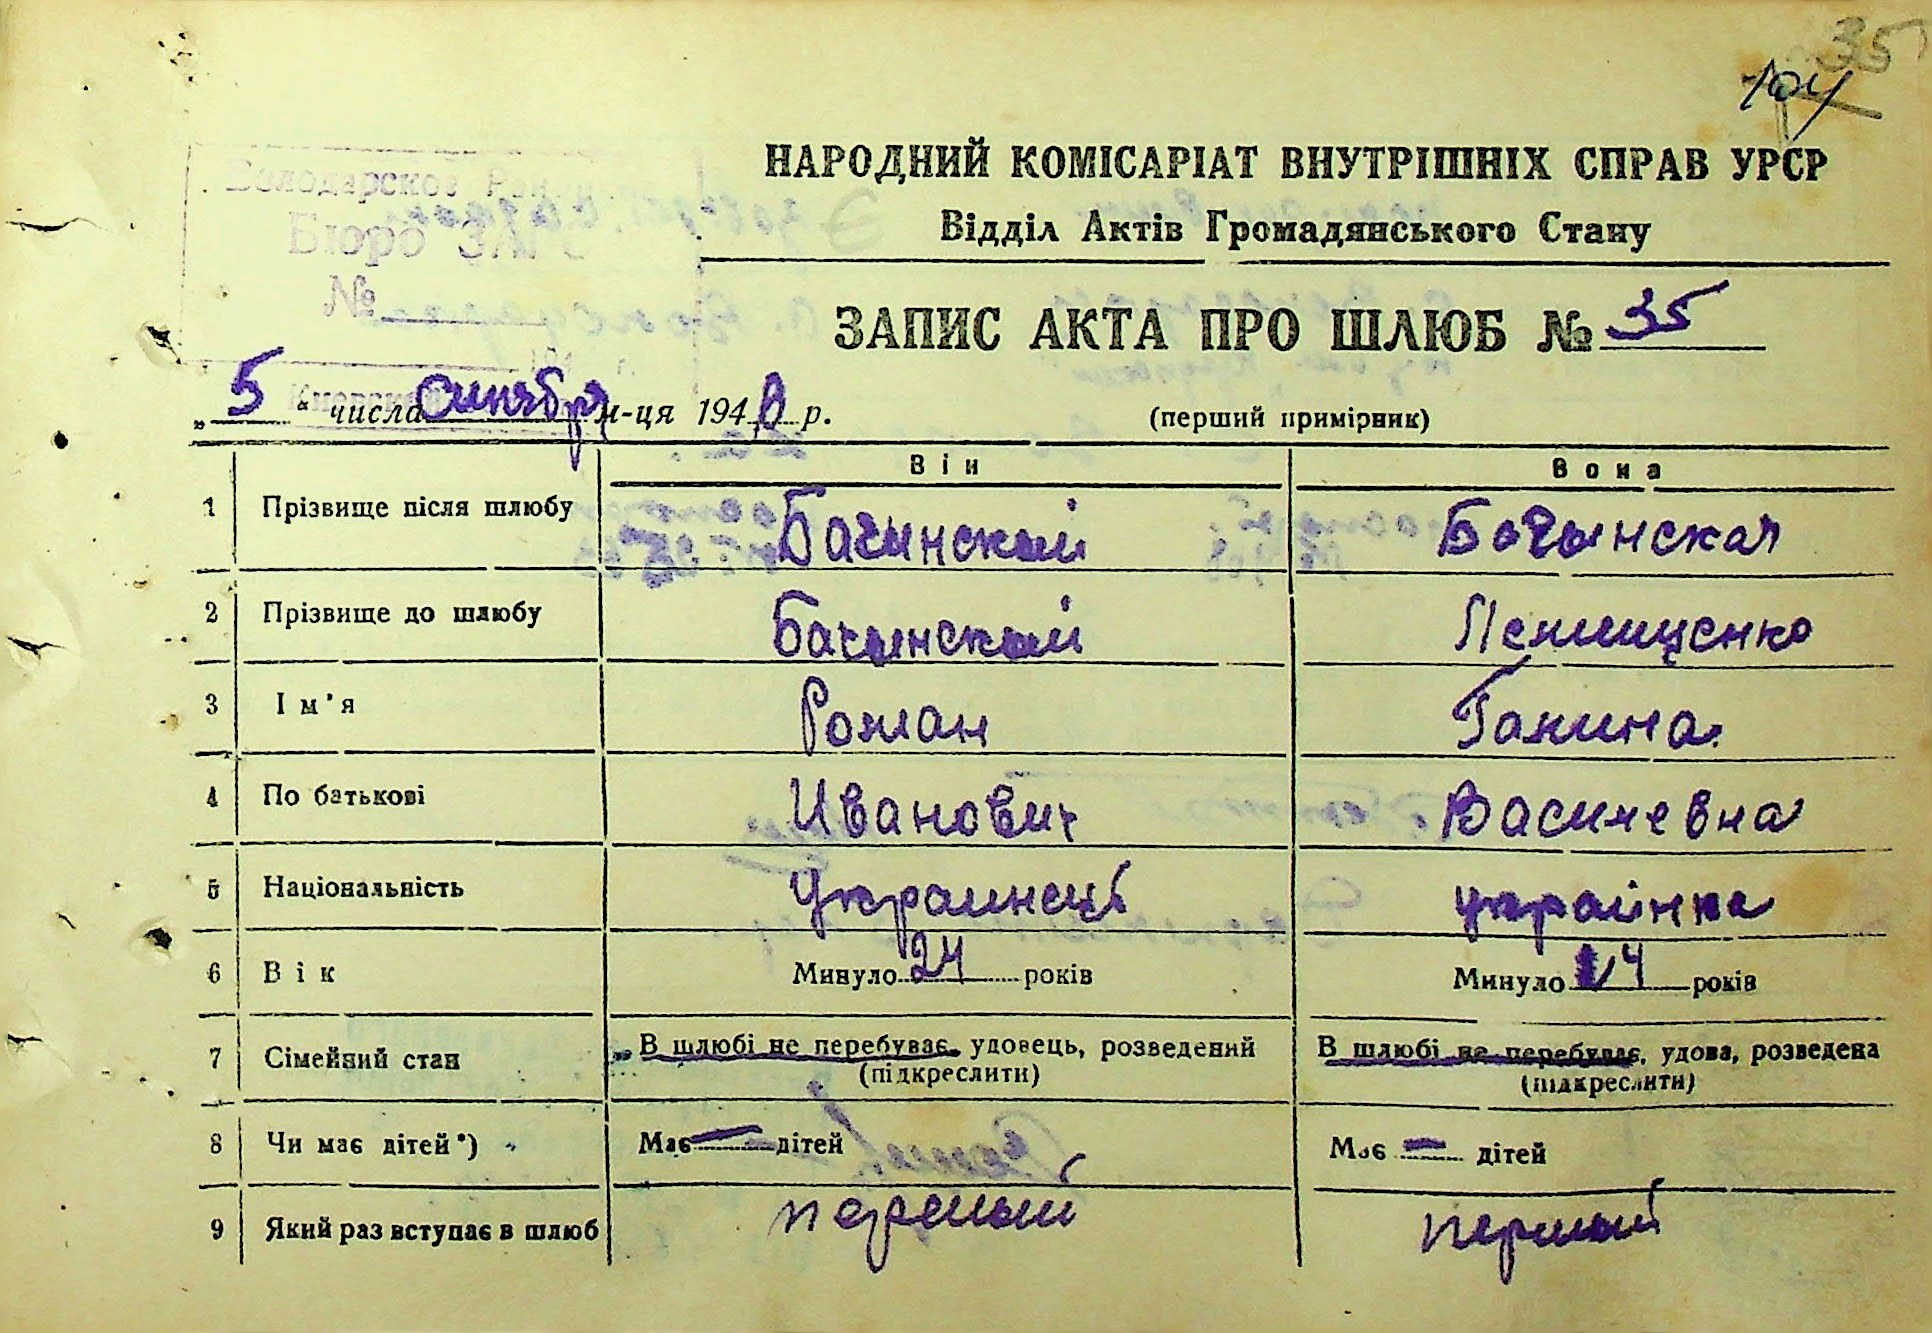 35
104
НАРОДНИЙ КОМІСАРІАТ ВНУТРІШНІХ СПРАВ УРСР
Відділ Актів Громадянського Стану
Володарское
Бюро ЗАГС
№
ЗАПИС АКТА ПРО ШЛЮБ № 35
„ 5 “ числа октября м-ця 1940 р.
(перший примірник)
Він Вона
1 Прізвище після шлюбу Бачинский Бачинская
2 Прізвище до шлюбу Бачинский
3 Ім'я Роман Галина
4 По батькові Иванович Василевна
5 Національність украинец украінка
6 Вік Минуло 24 років Минуло років
7 Сімейний стан В шлюбі не перебуває, удовець, розведений В шлюбі не перебуває, удова, розведена
(підкреслити) (підкреслити)
8 Чи має дітей*) Має — дітей Має — дітей
9 Який раз вступає в шлюб первый первый